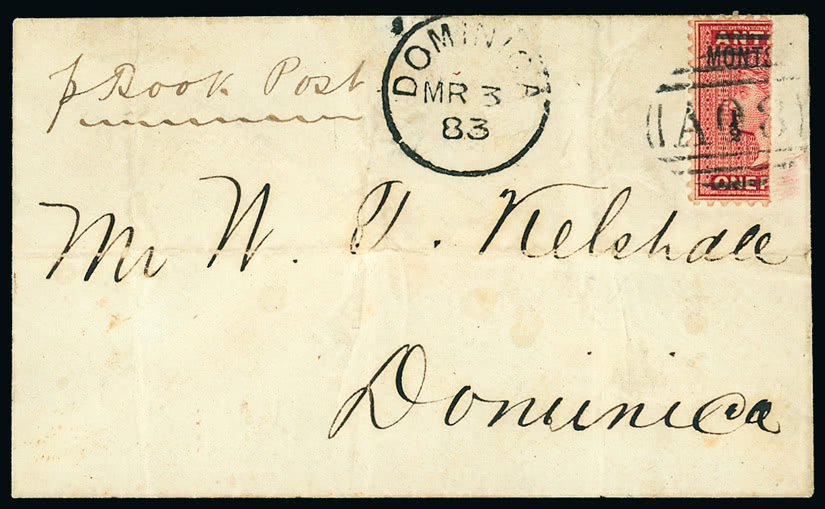 DOMINICA
MR 3
83
p Book Post
ANT
MONTS
A08
ONE P
Mr W. H. Kelshall
Dominica